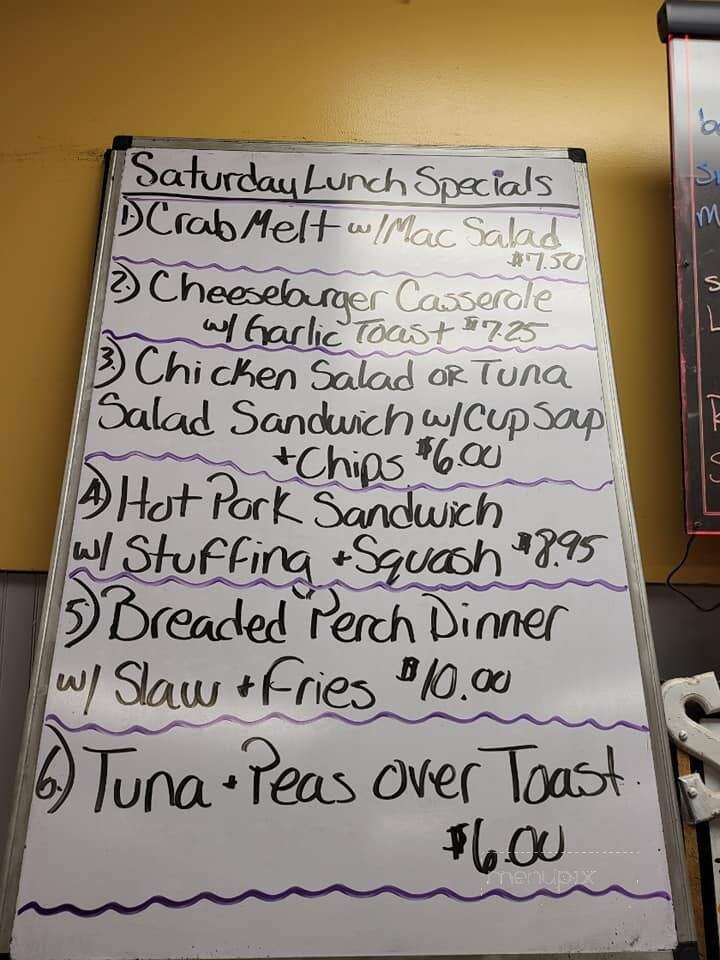 Saturday Lunch Specials
1.) Crab Melt w/Mac Salad
$7.50
2.) Cheeseburger Casserole
w/ Garlic Toast $7.25
3.) Chicken Salad OR Tuna
Salad Sandwich w/Cup Soup
+ Chips $6.00
4.) Hot Pork Sandwich
w/ Stuffing + Squash $8.95
5.) Breaded Perch Dinner
w/ Slaw + Fries $10.00
6.) Tuna + Peas over Toast
$6.00
menupix